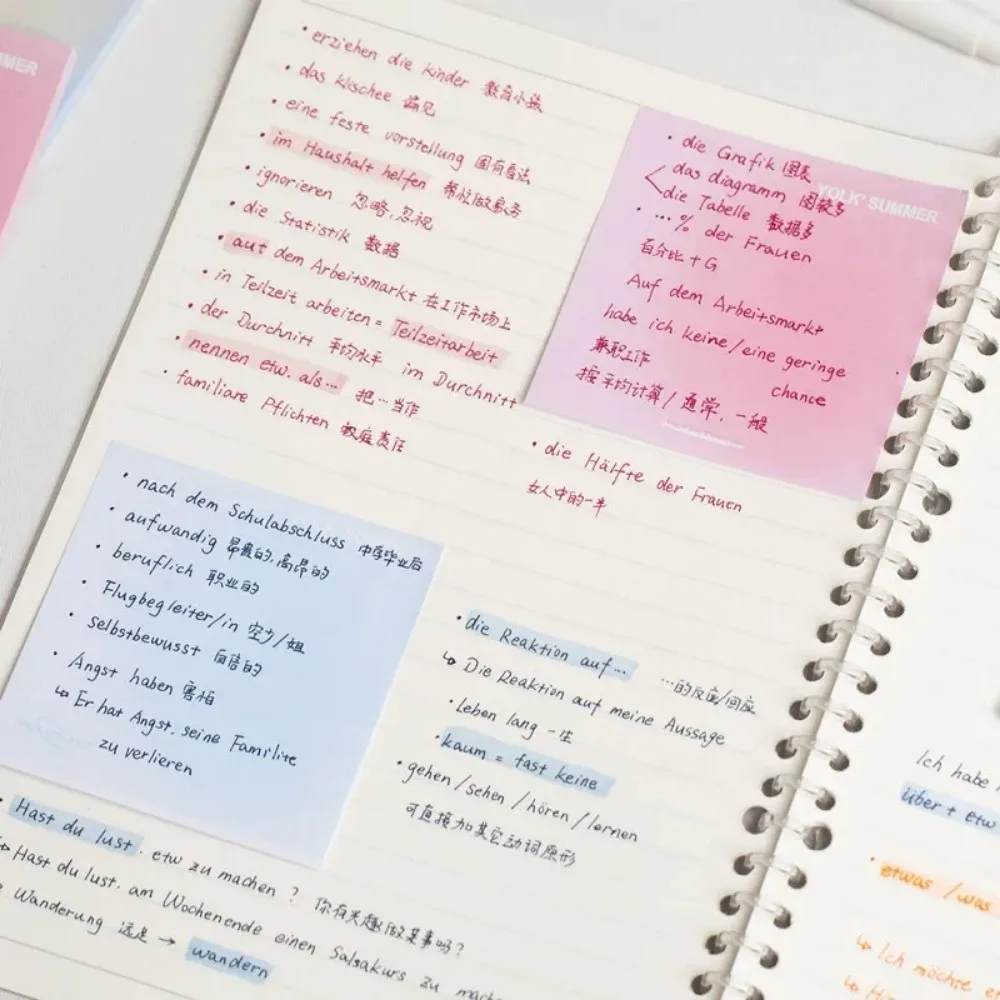 MMER
• erziehen die kinder 教育小孩
• das klischee 偏见
• eine feste vorstellung 固有看法
• im Haushalt helfen 帮忙做家务
• ignorieren 忽略,忽视
• die Statistik 数据
• auf dem Arbeitsmarkt 在工作市场上
• in Teilzeit arbeiten = Teilzeitarbeit
• der Durchnitt 平均水平 im Durchnitt
• nennen etw. als... 把…当作
• familiare Pflichten 家庭责任
• die Grafik 图表
das diagramm 图较多
YOLK' SUMMER
die Tabelle 数据多
• ...% der Frauen
百分比+G
Auf dem Arbeitsmarkt
habe ich keine/eine geringe
chance
兼职工作
按平均计算/通常,一般
• die Hälfte der Frauen
女人中的一半
• nach dem Schulabschluss 中学毕业后
• aufwandig 昂贵的,高昂的
• beruflich 职业的
• Flugbegleiter/in 空少/姐
• selbstbewusst 自信的
• Angst haben 害怕
↳ Er hat Angst, seine Familite
zu verlieren
• die Reaktion auf... ...的反应/回应
↳ Die Reaktion auf meine Aussage
• leben lang 一生
• kaum = fast keine
• gehen/sehen/hören/lernen
可直接加其它动词原形
• Hast du lust, etw zu machen? 你有兴趣做某事吗?
↳ Hast du lust, am Wochenende einen Salsakurs zu mach
Wanderung 远足 → wandern
Ich habe
über + etw
• etwas/was
↳ Ich möchte et
↳ Hi